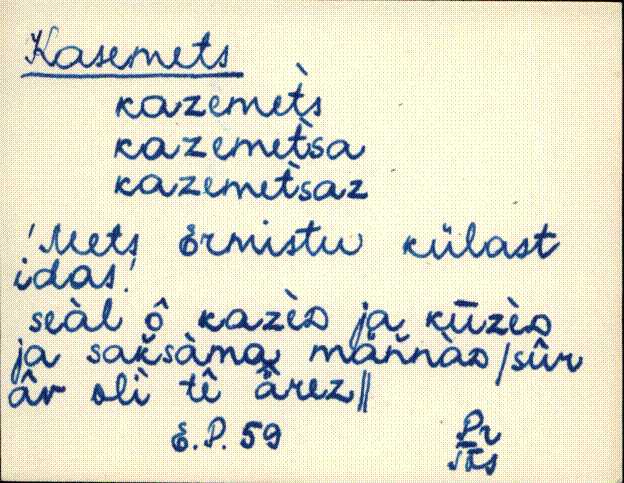 Kasemets
kazemet̀s
kazemet̀sa
kazemet̀saz
'Mets Ermistu külast
idas.'
seàl ô kazèᴅ ja kūzèᴅ
ja saksàma männàᴅ/sûr
âv olì tê ärez‖
E.P. 59 Pr